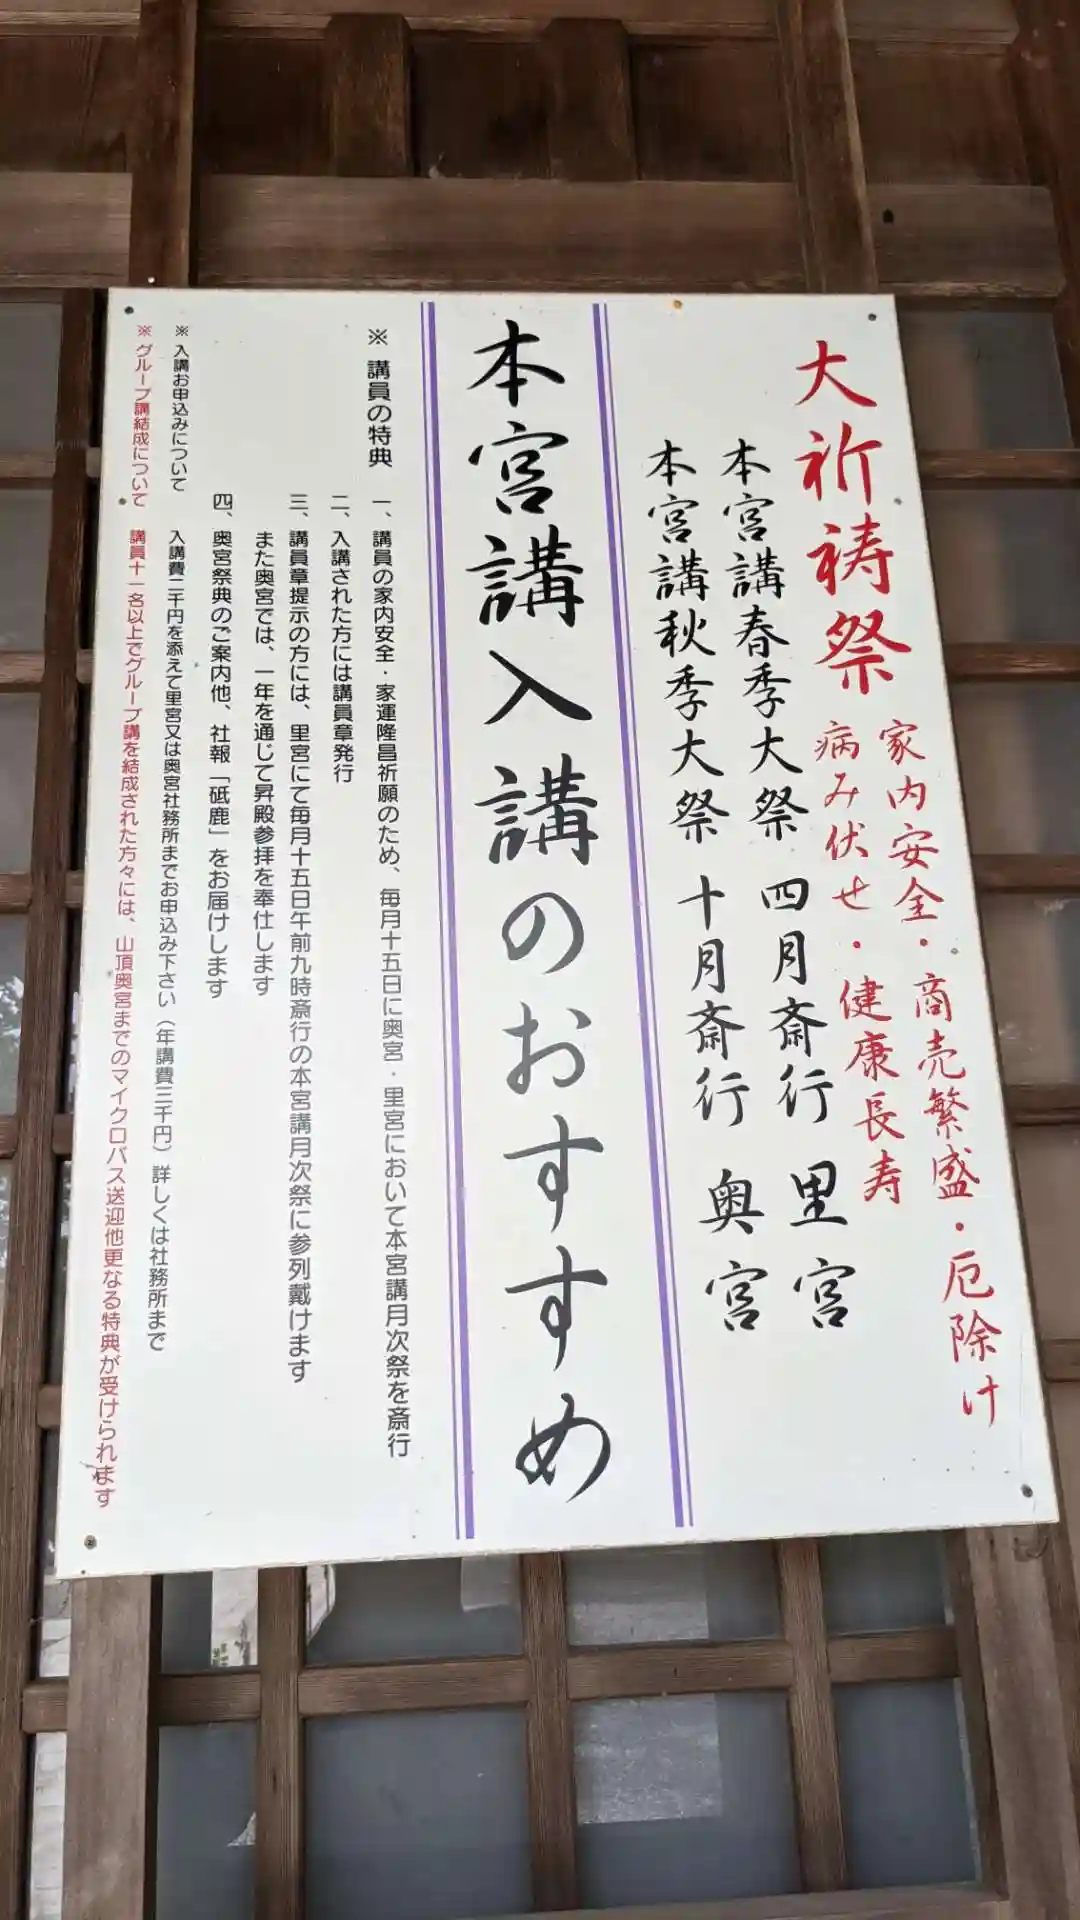 大祈祷祭
家内安全・商売繁盛・厄除け
病み伏せ・健康長寿
本宮講春季大祭 四月斎行 里宮
本宮講秋季大祭 十月斎行 奥宮
本宮講入講のおすすめ
※ 講員の特典
一、講員の家内安全・家運隆昌祈願のため、毎月十五日に奥宮・里宮において本宮講月次祭を斎行
二、入講された方には講員章発行
三、講員章提示の方には、里宮にて毎月十五日午前九時斎行の本宮講月次祭に参列戴けます
また奥宮では、一年を通じて昇殿参拝を奉仕します
四、奥宮祭典のご案内他、社報「砥鹿」をお届けします
※ 入講お申込みについて 入講費二千円を添えて里宮又は奥宮社務所までお申込み下さい（年講費三千円）詳しくは社務所まで
※ グループ講結成について 講員十一名以上でグループ講を結成された方々には、山頂奥宮までのマイクロバス送迎他更なる特典が受けられます